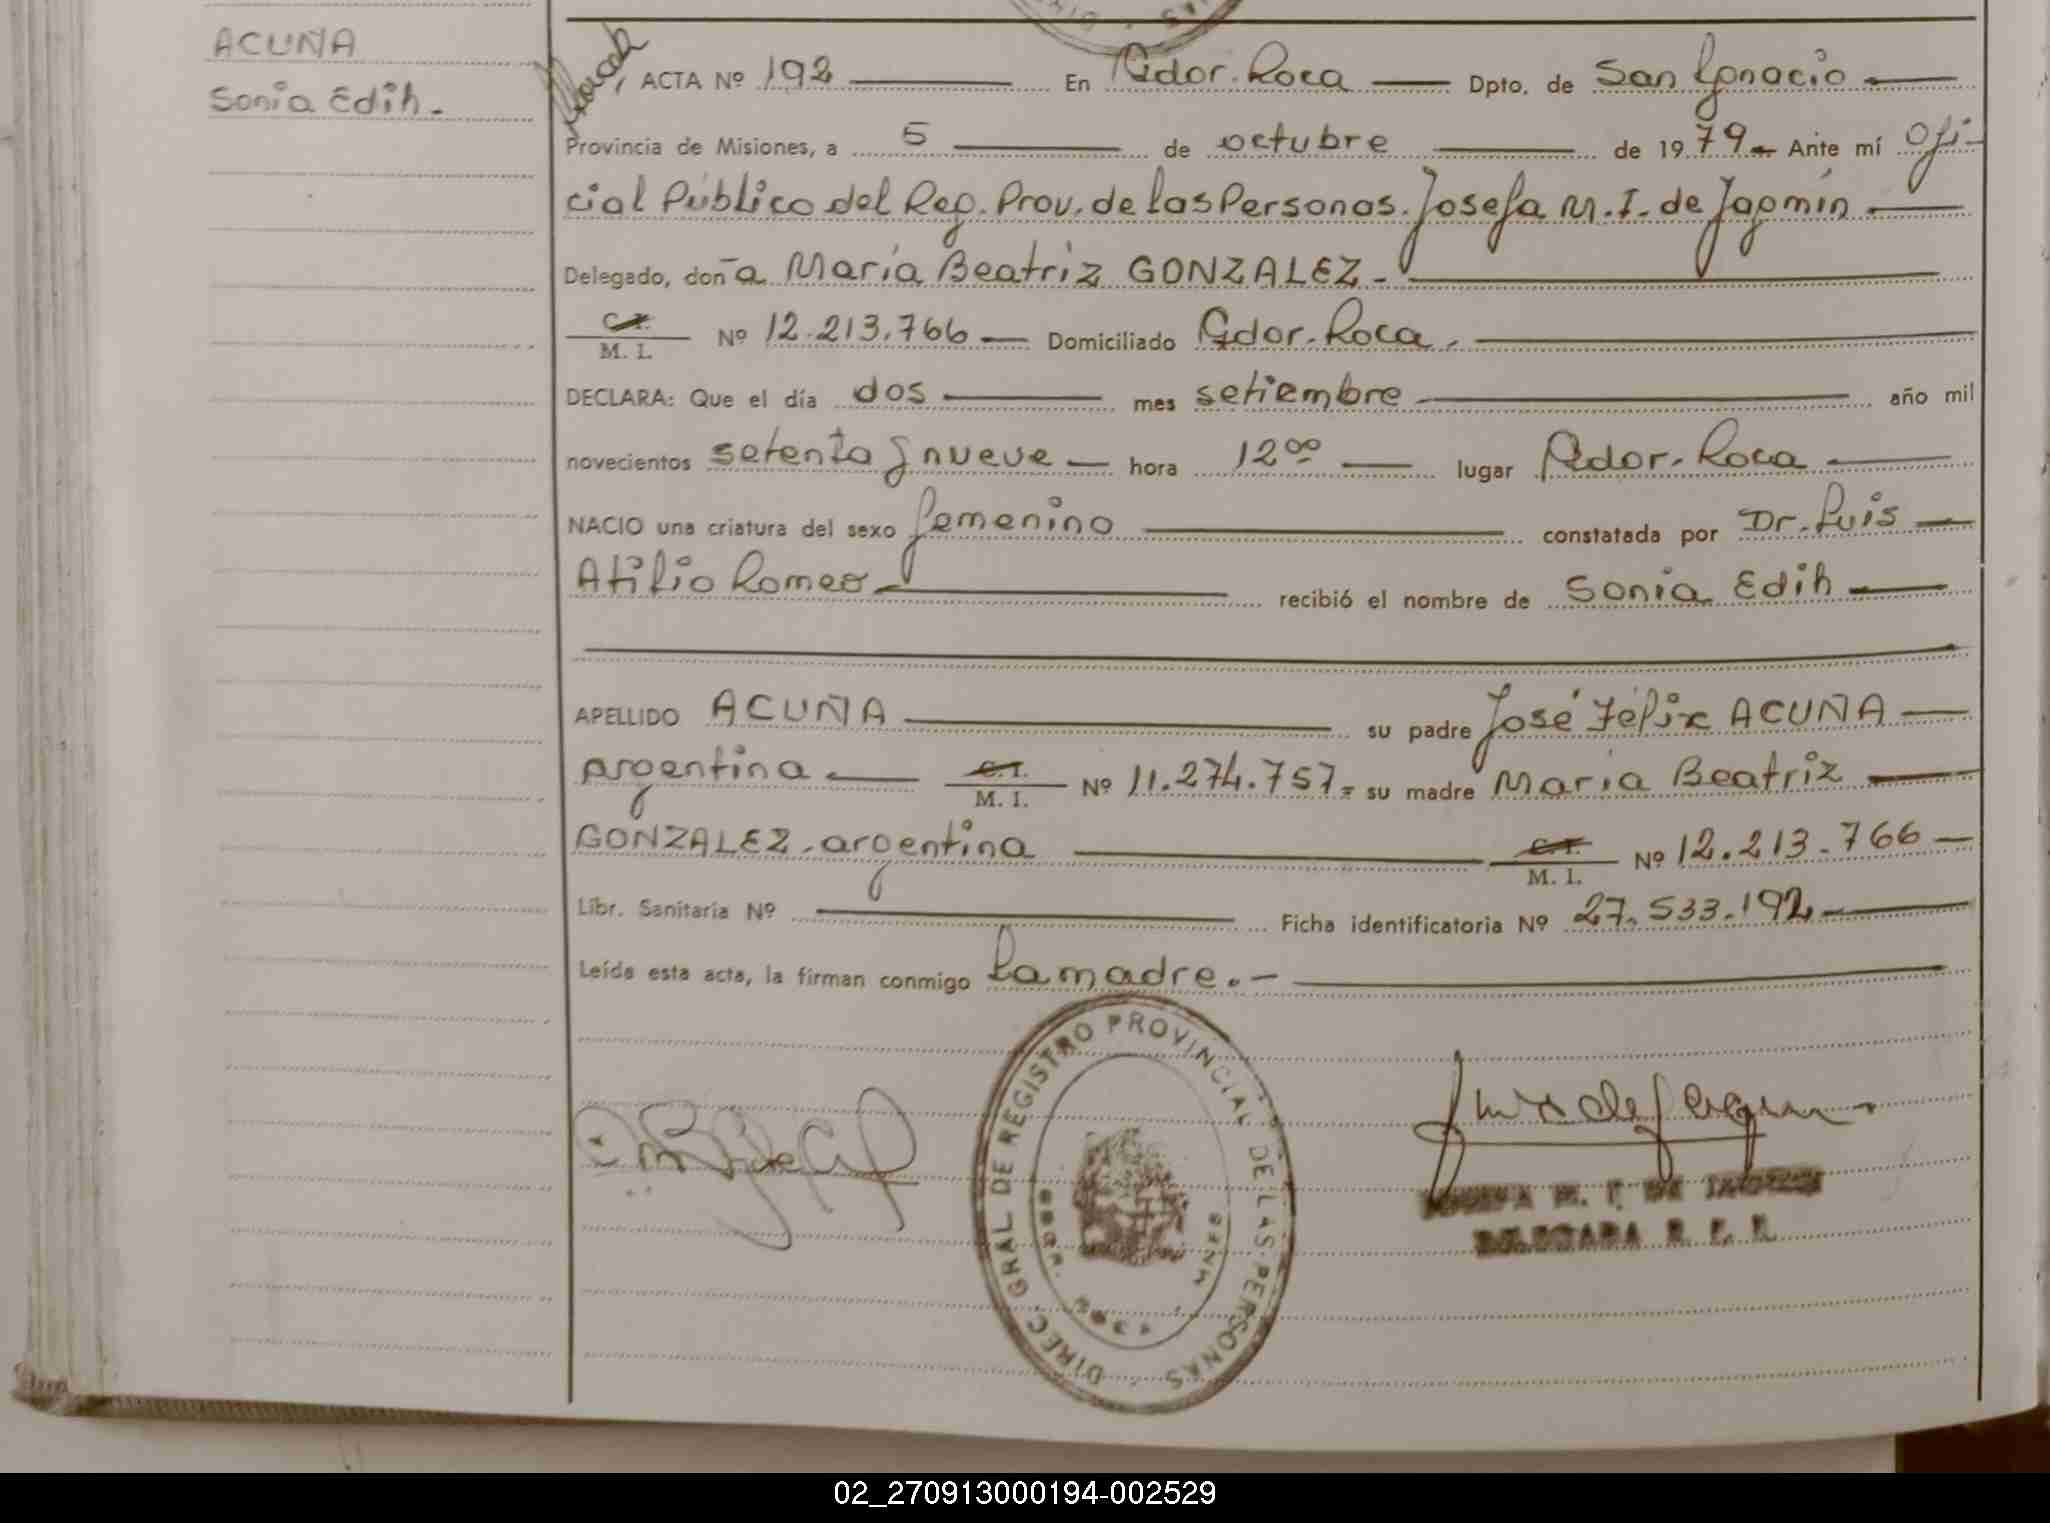 ACUÑA
Sonia Edih.-
ACTA Nº 192 En Gdor. Roca Dpto. de San Ignacio
Provincia de Misiones, a 5 de octubre de 1979.- Ante mí Ofi-
cial Público del Reg. Prov. de las Personas. Josefa M. I. de Jagmin
Delegado, doña María Beatriz GONZALEZ.-
C. I.
M. I. Nº 12.213.766 Domiciliado Gdor. Roca.
DECLARA: Que el día dos mes setiembre año mil
novecientos setenta y nueve hora 12⁰⁰ lugar Gdor. Roca
NACIO una criatura del sexo femenino constatada por Dr. Luis
Atilio Romeo recibió el nombre de Sonia Edih
APELLIDO ACUÑA su padre José Félix ACUÑA
argentina C. I.
M. I. Nº 11.274.757= su madre María Beatriz
GONZALEZ. argentina C. I.
M. I. Nº 12.213.766
Libr. Sanitaria Nº Ficha identificatoria Nº 27.533.192
Leída esta acta, la firman conmigo la madre.-
DIREC. GRAL DE REGISTRO PROVINCIAL DE LAS PERSONAS
DELEGADA R. P. P.
02_270913000194-002529